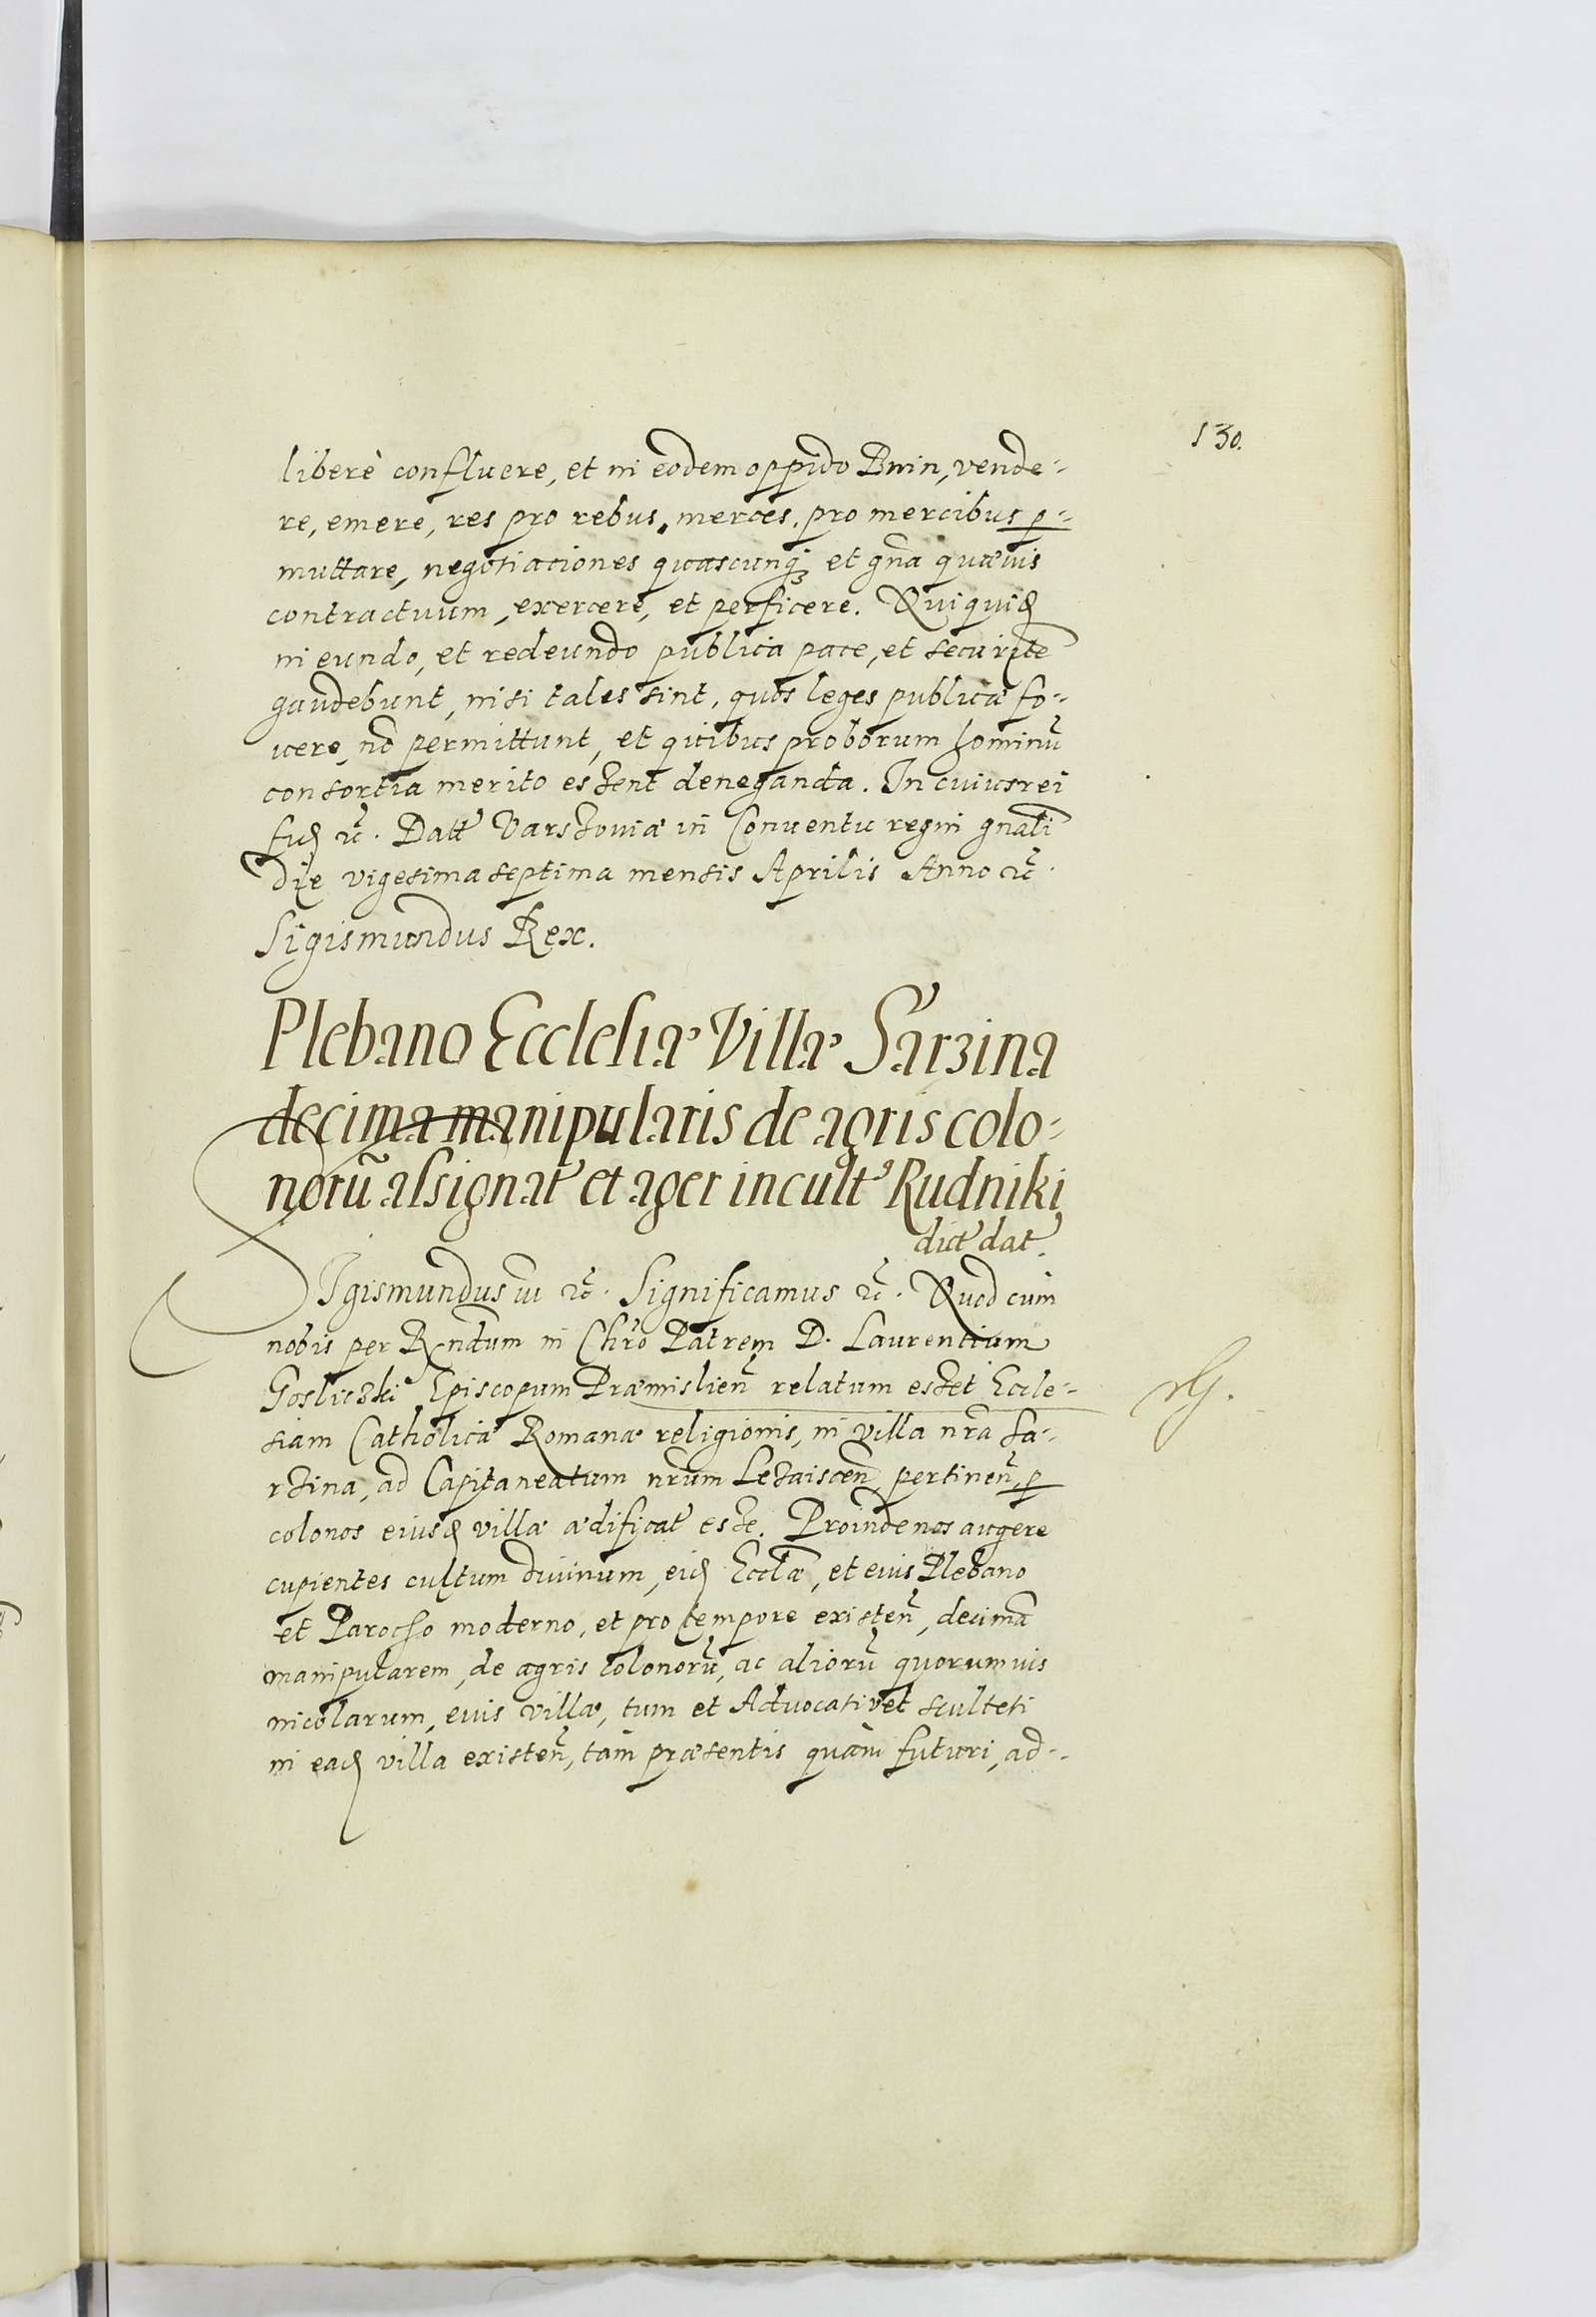 130.
liberè confluere, et in eodem oppido Bnin, vende-
re, emere, res pro rebus, merces, pro mercibus p-
muttare, negotiationes quascunq; et gña quævis
contractuum, exercere, et perficere. Qui quid
in eundo, et redeundo publica pace, et securite
gaudebunt, nisi tales sint, quos leges publicæ fo-
vere nõ permittunt, et quibus proborum hominũ
consortia merito essent deneganda. In cuius rei
fid &c. Datt Varssoviæ in Conventu regni gnali
die vigesima septima mensis Aprilis Anno &c.
Sigismundus Rex.
Plebano Ecclesiæ Villæ Sarzina
decima manipularis de agris colo-
norũ assignat et ager incult9 Rudniki
dict dat.
SIgismundus iii &c. Significamus &c. Quod cum
nobis per Rndum in Chro Patrem D. Laurentium
Gosliczki Episcopum Præmislien relatum esset Eccle-
siam Catholicæ Romanæ religionis, in villa nra Sa-
rzina, ad Capitaneatum nrum Lezaiscen pertinen, p
colonos eiusd villæ ædificat esse. Proinde nos augere
cupientes cultum divinum, eid Ecclæ, et eius Plebano
et Parocho moderno, et pro tempore existen, decimã
manipularem, de agris colonorũ, ac aliorũ quorumvis
incolarum, eius villæ, tum et Advocati vel sculteti
in ead villa existen, tam præsentis quàm futuri, ad-